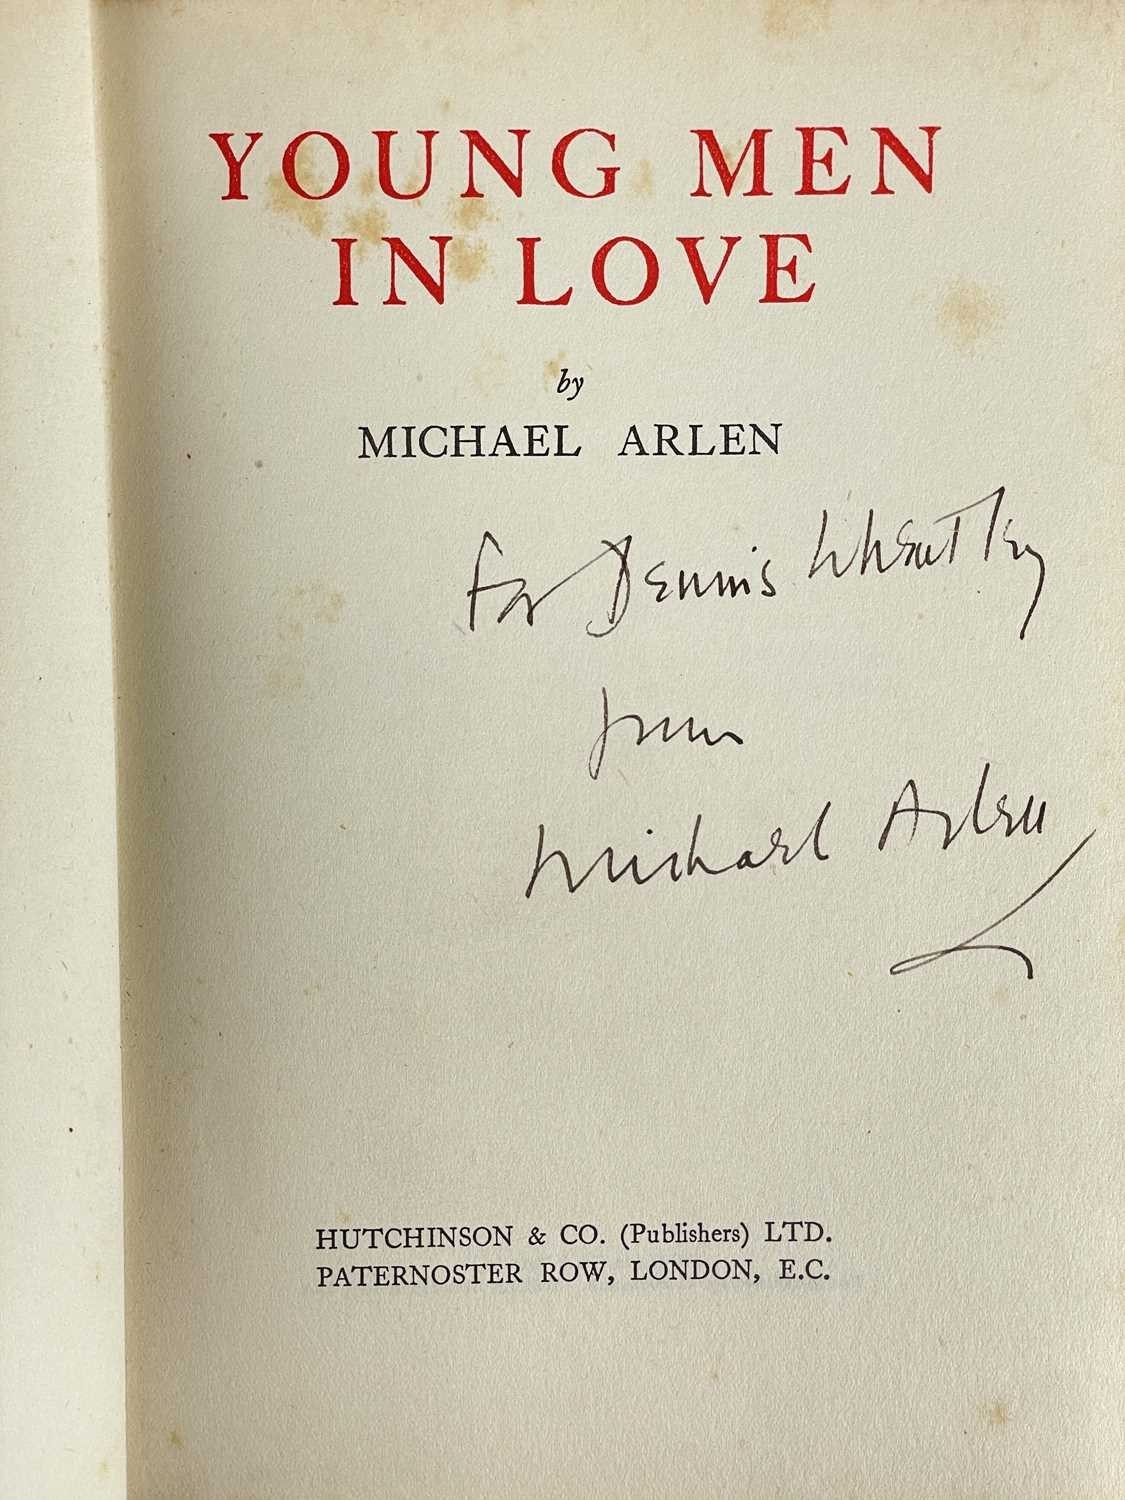 YOUNG MEN
IN LOVE
by
MICHAEL ARLEN
For Dennis Wheatley
from
Michael Arlen
HUTCHINSON & CO. (Publishers) LTD.
PATERNOSTER ROW, LONDON, E.C.